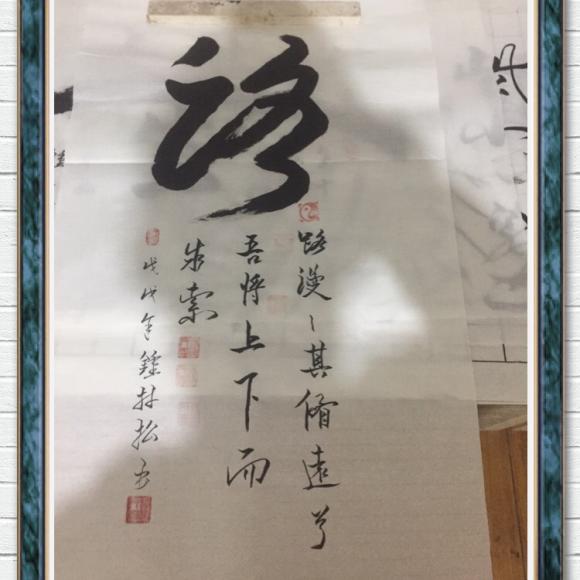 路
路漫〻其脩遠兮
吾将上下而
求索
戊戌年鍾林松书